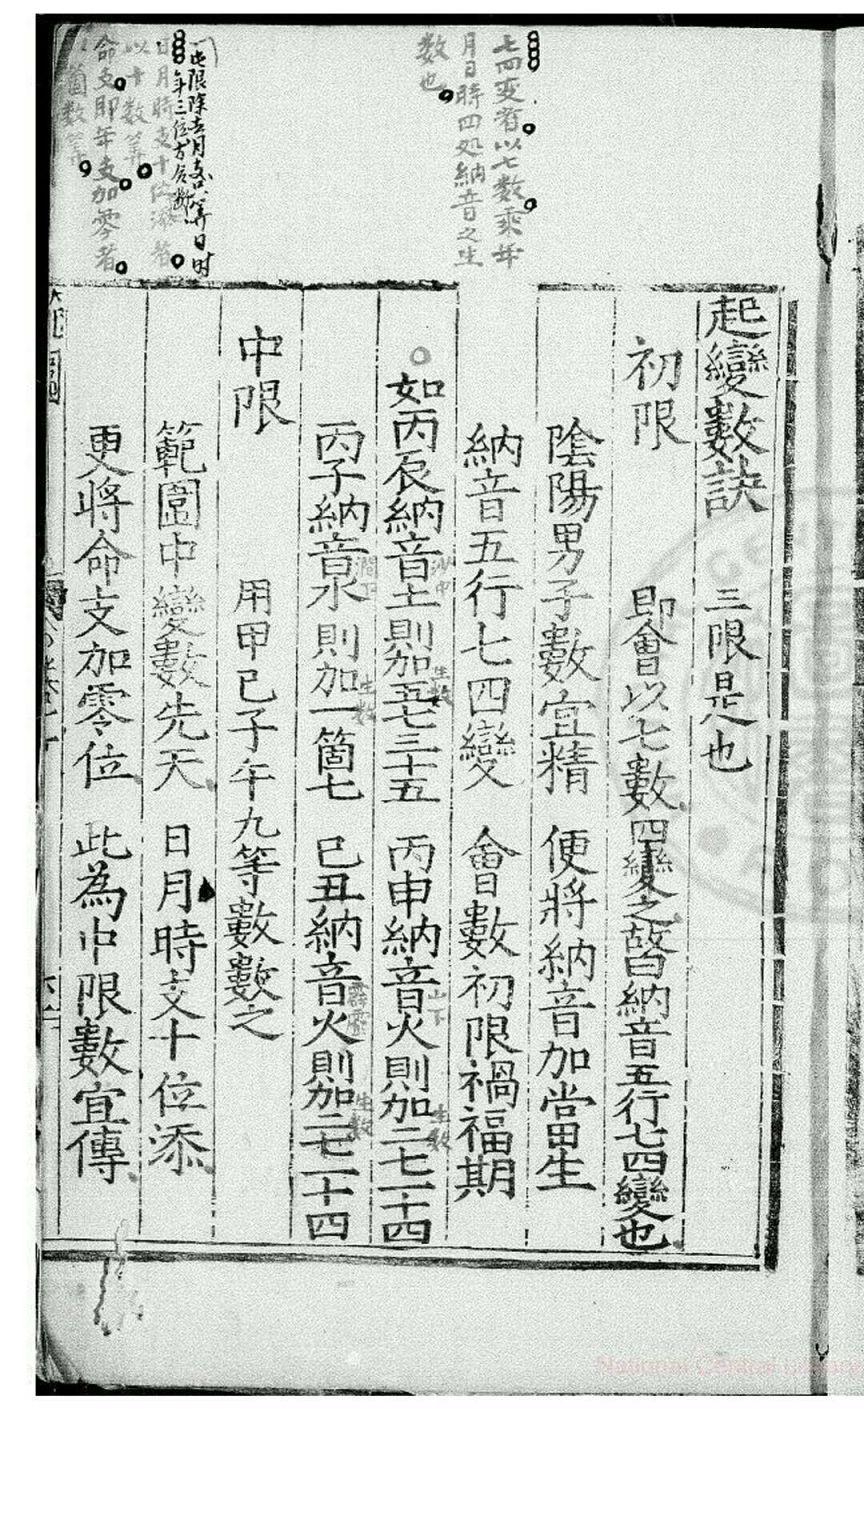 七四变者以七數乘年
月日時四処納音之生
數也
日月時支十位添者
以十數筭
命支即年支加零者
起變數訣 三限是也
初限 即會以七數四變之故曰納音五行七四變也
陰陽男子數宜精 便將納音加當生
納音五行七四變 會數初限禍福期
如丙辰納音土則加五七三十五 丙申納音火則加二七一十四
沙中 生數 山下 生數
丙子納音水則加一箇七 己丑納音火則加二七一十四
澗下 生數 霹靂 生數
中限 用甲己子午九等數數之
範圍中變數先天 日月時支十位添
更將命支加零位 此為中限數宜傳
National Central Library